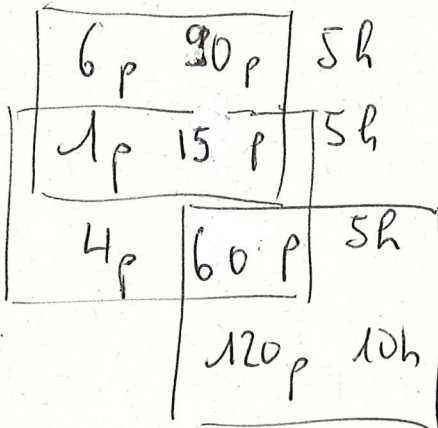 6p 90p 5h
1p 15 p 5h
4p 60 p 5h
120p 10h